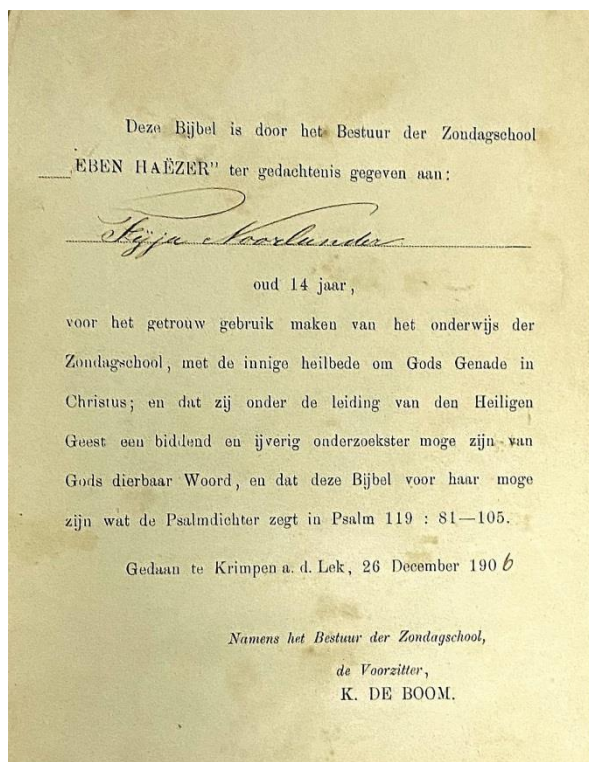 Deze Bijbel is door het Bestuur der Zondagschool
„EBEN HAËZER” ter gedachtenis gegeven aan:
Fijja Noorlander
oud 14 jaar,
voor het getrouw gebruik maken van het onderwijs der
Zondagschool, met de innige heilbede om Gods Genade in
Christus; en dat zij onder de leiding van den Heiligen
Geest een biddend en ijverig onderzoekster moge zijn van
Gods dierbaar Woord, en dat deze Bijbel voor haar moge
zijn wat de Psalmdichter zegt in Psalm 119 : 81—105.
Gedaan te Krimpen a. d. Lek, 26 December 1906
Namens het Bestuur der Zondagschool,
de Voorzitter,
K. DE BOOM.